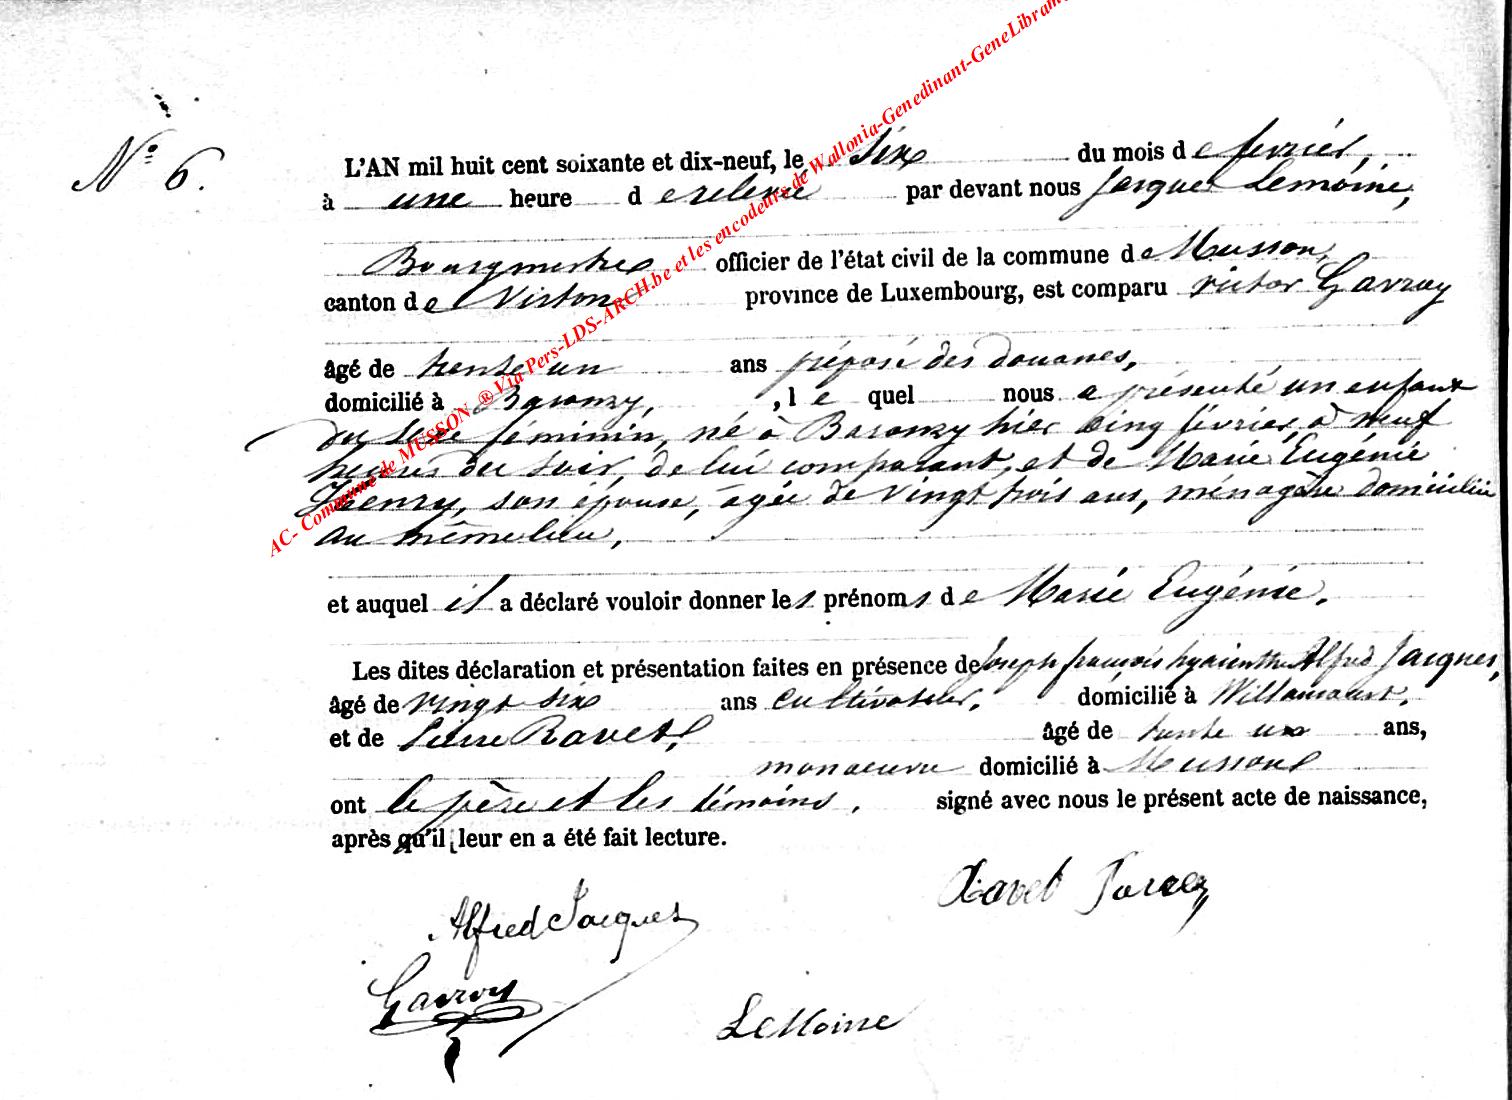 Nº 6.
L'AN mil huit cent soixante et dix-neuf, le six du mois de février,
à une heure de relevé par devant nous Jacques Lemoine,
Bourgmestre officier de l'état civil de la commune de Musson,
canton de Virton province de Luxembourg, est comparu victor Gavroy
âgé de trente un ans préposé des douanes,
domicilié à Baranzy, , le quel nous a présenté un enfant
du sexe féminin, né à Baranzy hier cinq février, à neuf
heures du soir, de lui comparant, et de Marie Eugénie
Henry, son épouse, âgée de vingt trois ans, ménagère domiciliée
au même lieu,
et auquel il a déclaré vouloir donner les prénoms de Marie Eugénie.
Les dites déclaration et présentation faites en présence de Joseph françois hyacinthe Alfred Jacques,
âgé de vingt six ans cultivateur, domicilié à Willancourt,
et de Pierre Ravet, âgé de trente un ans,
manoeuvre domicilié à Musson
ont le père et les témoins, signé avec nous le présent acte de naissance,
après qu'il leur en a été fait lecture.
Ravet
Alfred Jacques
Gavroy
LeMoine
AC- Commune de MUSSON ® Via Pers-LDS-ARCH.be et les encodeurs de Wallonia-Genedinant-GeneLibram